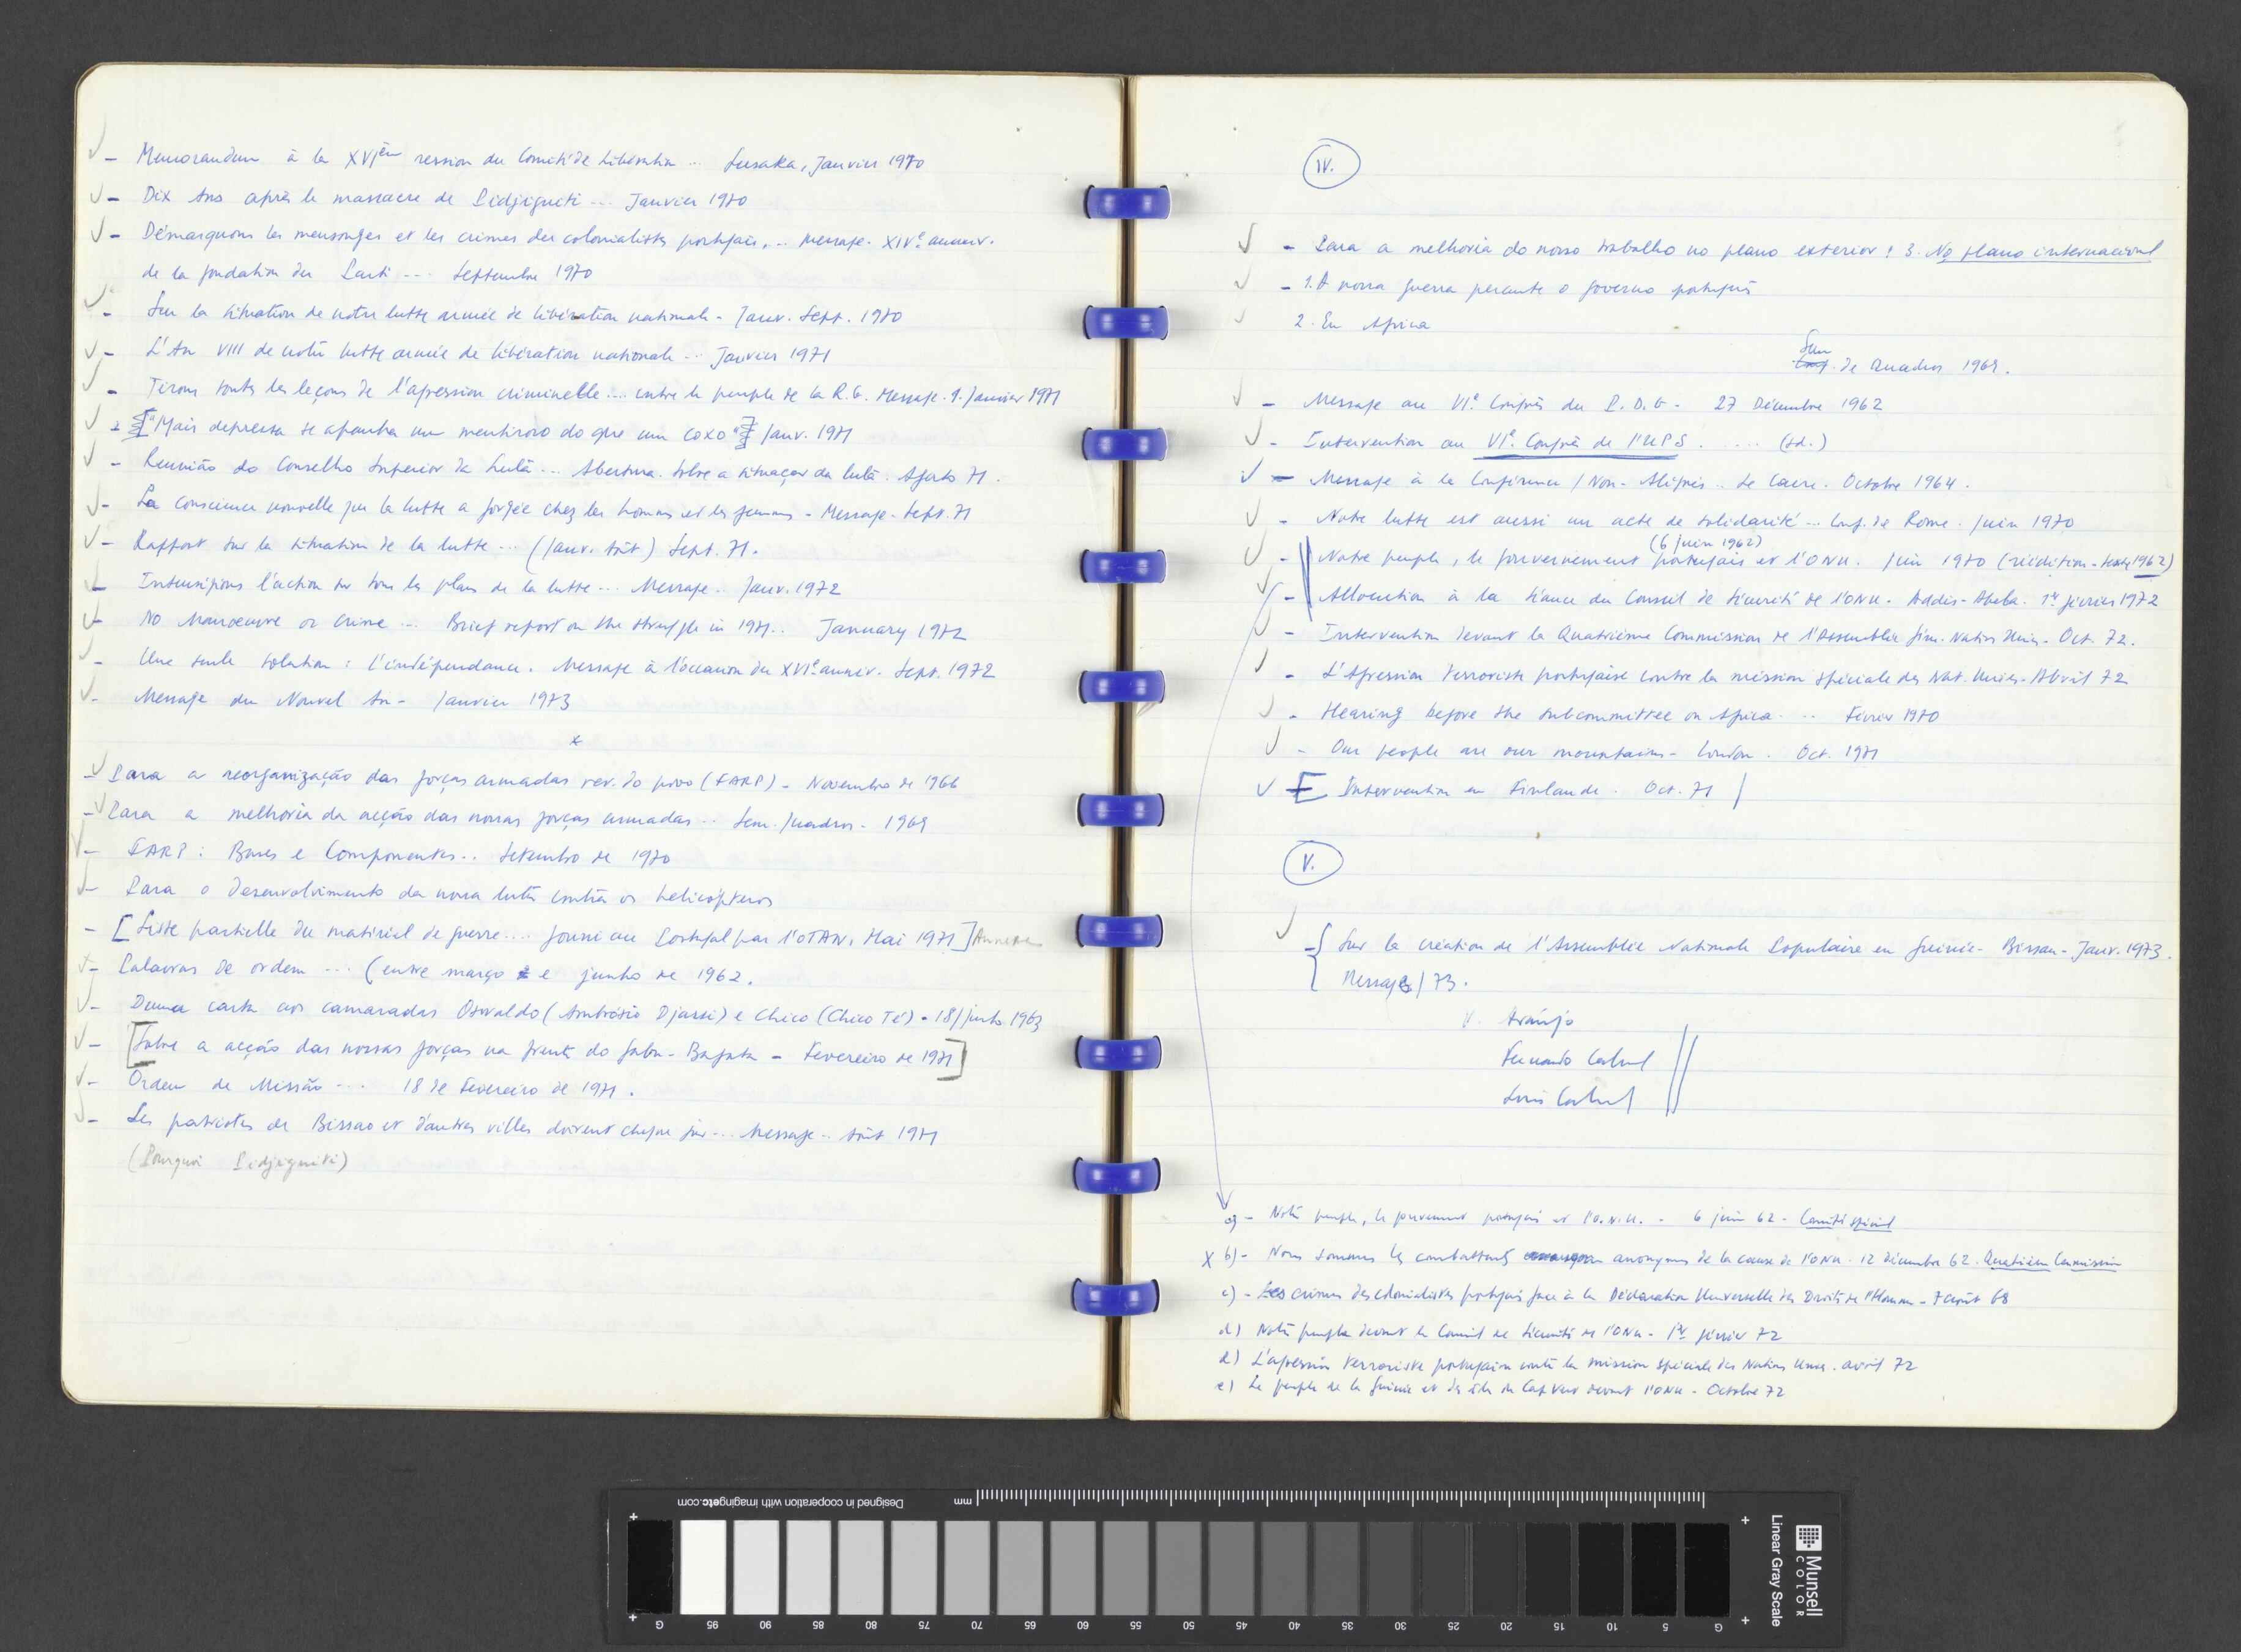 - Memorandum à la XVIèm session du Comité de Libération ... Lusaka, Janvier 1970
- Dix Ans après le massacre de Pidjiguiti ... Janvier 1970
- Démasquons les mensonges et les crimes des colonialistes portugais, .. Message. XIVe anniv.
de la fondation du Parti --- Septembre 1970
- Sur la situation de notre lutte armée de libération nationale - Janv. Sept. 1970
- L'An VIII de notre lutte armée de libération nationale ... Janvier 1971
- Tirons toutes les leçons de l'agression criminelle ... contre le peuple de la R.G. Message. 1. Janvier 1971
- "Mais depressa se apanha um mentiroso do que um coxo" Janv. 1971
- Reunião do Conselho Superior da Luta ... Abertura. Sobre a situação da luta. Agosto 71.
- La conscience nouvelle que la lutte a forgée chez les hommes et les femmes - Message - Sept. 71
- Rapport sur la situation de la lutte ... (Janv. Août) Sept. 71.
- Intensifions l'action sur tous les plans de la lutte ... Message .. Janv. 1972
- No Manoeuvre or Crime ... Brief report on the struggle in 1971.. January 1972
- Une seule solution : l'indépendance. Message à l'occasion du XVIe anniv. Sept. 1972
- Message du Nouvel An - Janvier 1973
*
- Para a reorganização das forças armadas rev. do povo (FARP) - Novembro de 1966
- Para a melhoria da acção das nossas forças armadas .. Sem. Quadros - 1969
- FARP : Bases e Componentes .. Setembro de 1970
- Para o desenvolvimento da nossa luta contra os helicópteros
- [Liste partielle du matériel de guerre .... fourni au Portugal par l'OTAN, Mai 1971] Annexes
- Palavras de ordem ... (entre março e junho de 1962.
- Duma carta aos camaradas Osvaldo (Ambrósio Djassi) e Chico (Chico Té) - 18/junho 1963
- [Sobre a acção das nossas forças na frente do Gabu - Bafata - Fevereiro de 1971]
- Ordem de Missão --- 18 de Fevereiro de 1971.
- Les patriotes de Bissao et d'autres villes doivent chaque jour ... Message .. Août 1971
(Pourquoi Pidjiguiti)
IV.
- Para a melhoria do nosso trabalho no plano exterior : 3. No plano internacional
- 1. A nossa guerra perante o governo português
2. En Africa
Sem. de Quadros 1969.
- Message au VIe Congrès du P.D.G. - 27 Décembre 1962
- Intervention au VIe. Congrès de l'UPS. .... (sd.)
- Message à la Conférence / Non-Alignés .. Le Caire. Octobre 1964.
- Notre lutte est aussi un acte de solidarité ... Conf. de Rome. Juin 1970
(6 juin 1962)
- Notre peuple, le gouvernement portugais et l'ONU. Juin 1970 (réédition - texte 1962)
- Allocution à la séance du Conseil de Sécurité de l'ONU. Addis-Abeba. 1er février 1972
- Intervention devant la Quatrième Commission de l'Assemblée Gén. Nations Unies - Oct. 72.
- L'Agression terroriste portugaise contre la mission spéciale des Nat. Unies - Abril 72
- Hearing before the subcommittee on Africa ... Février 1970
- Our people are our mountains - London. Oct. 1971
- [Intervention en Finlande. Oct. 71
V.
- Sur la création de l'Assemblée Nationale Populaire en Guinée-Bissau - Janv. 1973.
Message / 73.
V. Araújo
Fernando Cabral
Luís Cabral
a) - Notre peuple, le gouvernement portugais et l'O.N.U. - 6 juin 62 - Comité spécial
x b) - Nous sommes les combattants anonymes de la cause de l'ONU - 12 décembre 62. Quatrième Commission
c) - Les crimes des colonialistes portugais face à la Déclaration Universelle des Droits de l'Homme - 7 août 68
d) Notre peuple devant le Conseil de Sécurité de l'ONU - 1er février 72
d) L'agression terroriste portugaise contre la mission spéciale des Nations Unies. avril 72
e) Le peuple de la Guinée et des îles du Cap Vert devant l'ONU - Octobre 72
Designed in cooperation with imagingetc.com
mm
Munsell COLOR
Linear Gray Scale
G 95 90 85 80 75 70 65 60 55 50 45 40 35 30 25 20 15 10 5 G